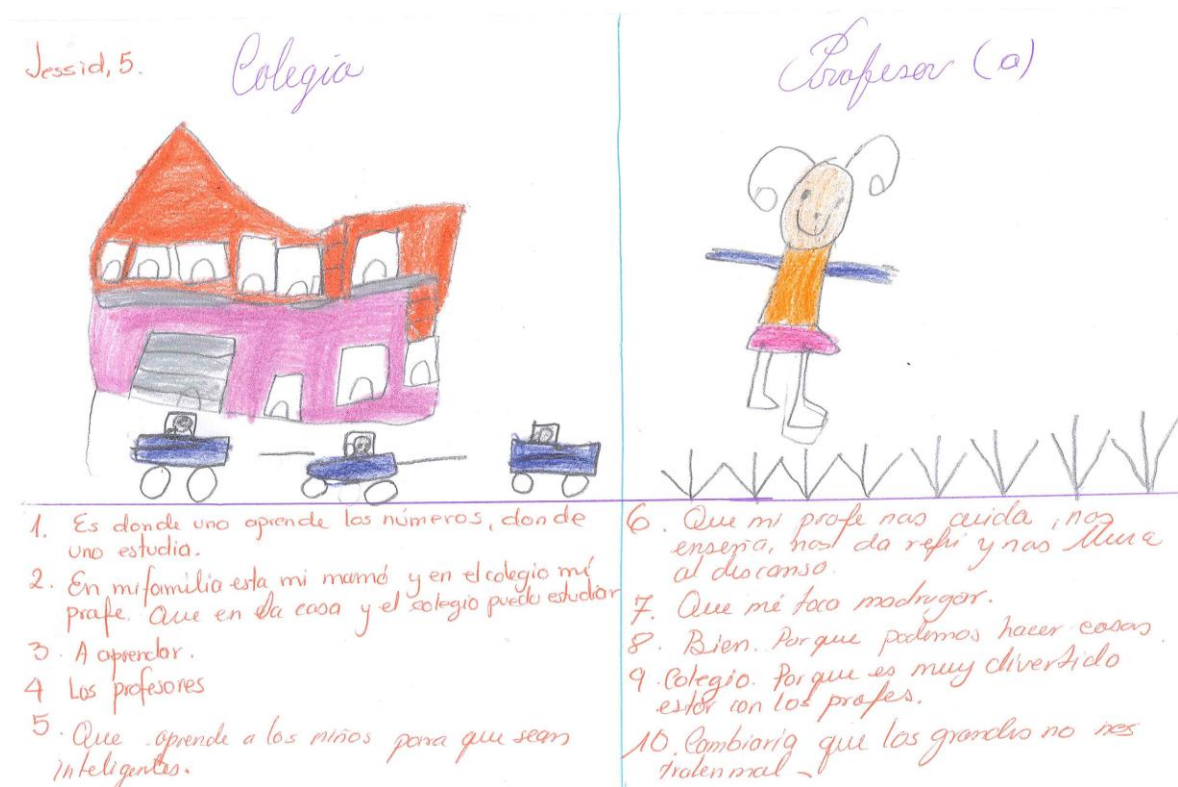 Jessid, 5.
Colegio
1. Es donde uno aprende los números, donde
uno estudia.
2. En mi familia esta mi mamá y en el colegio mi
profe. Que en la casa y el colegio puedo estudiar
3. A aprender.
4 Los profesores
5. Que aprende a los niños para que sean
inteligentes.
Profesor (a)
6. Que mi profe nos cuida, nos
enseña, nos da refri y nos lleva
al descanso.
7. Que me toca madrugar.
8. Bien. Porque podemos hacer cosas.
9. Colegio. Porque es muy divertido
estar con los profes.
10. Cambiaria que los grandes no nos
traten mal.